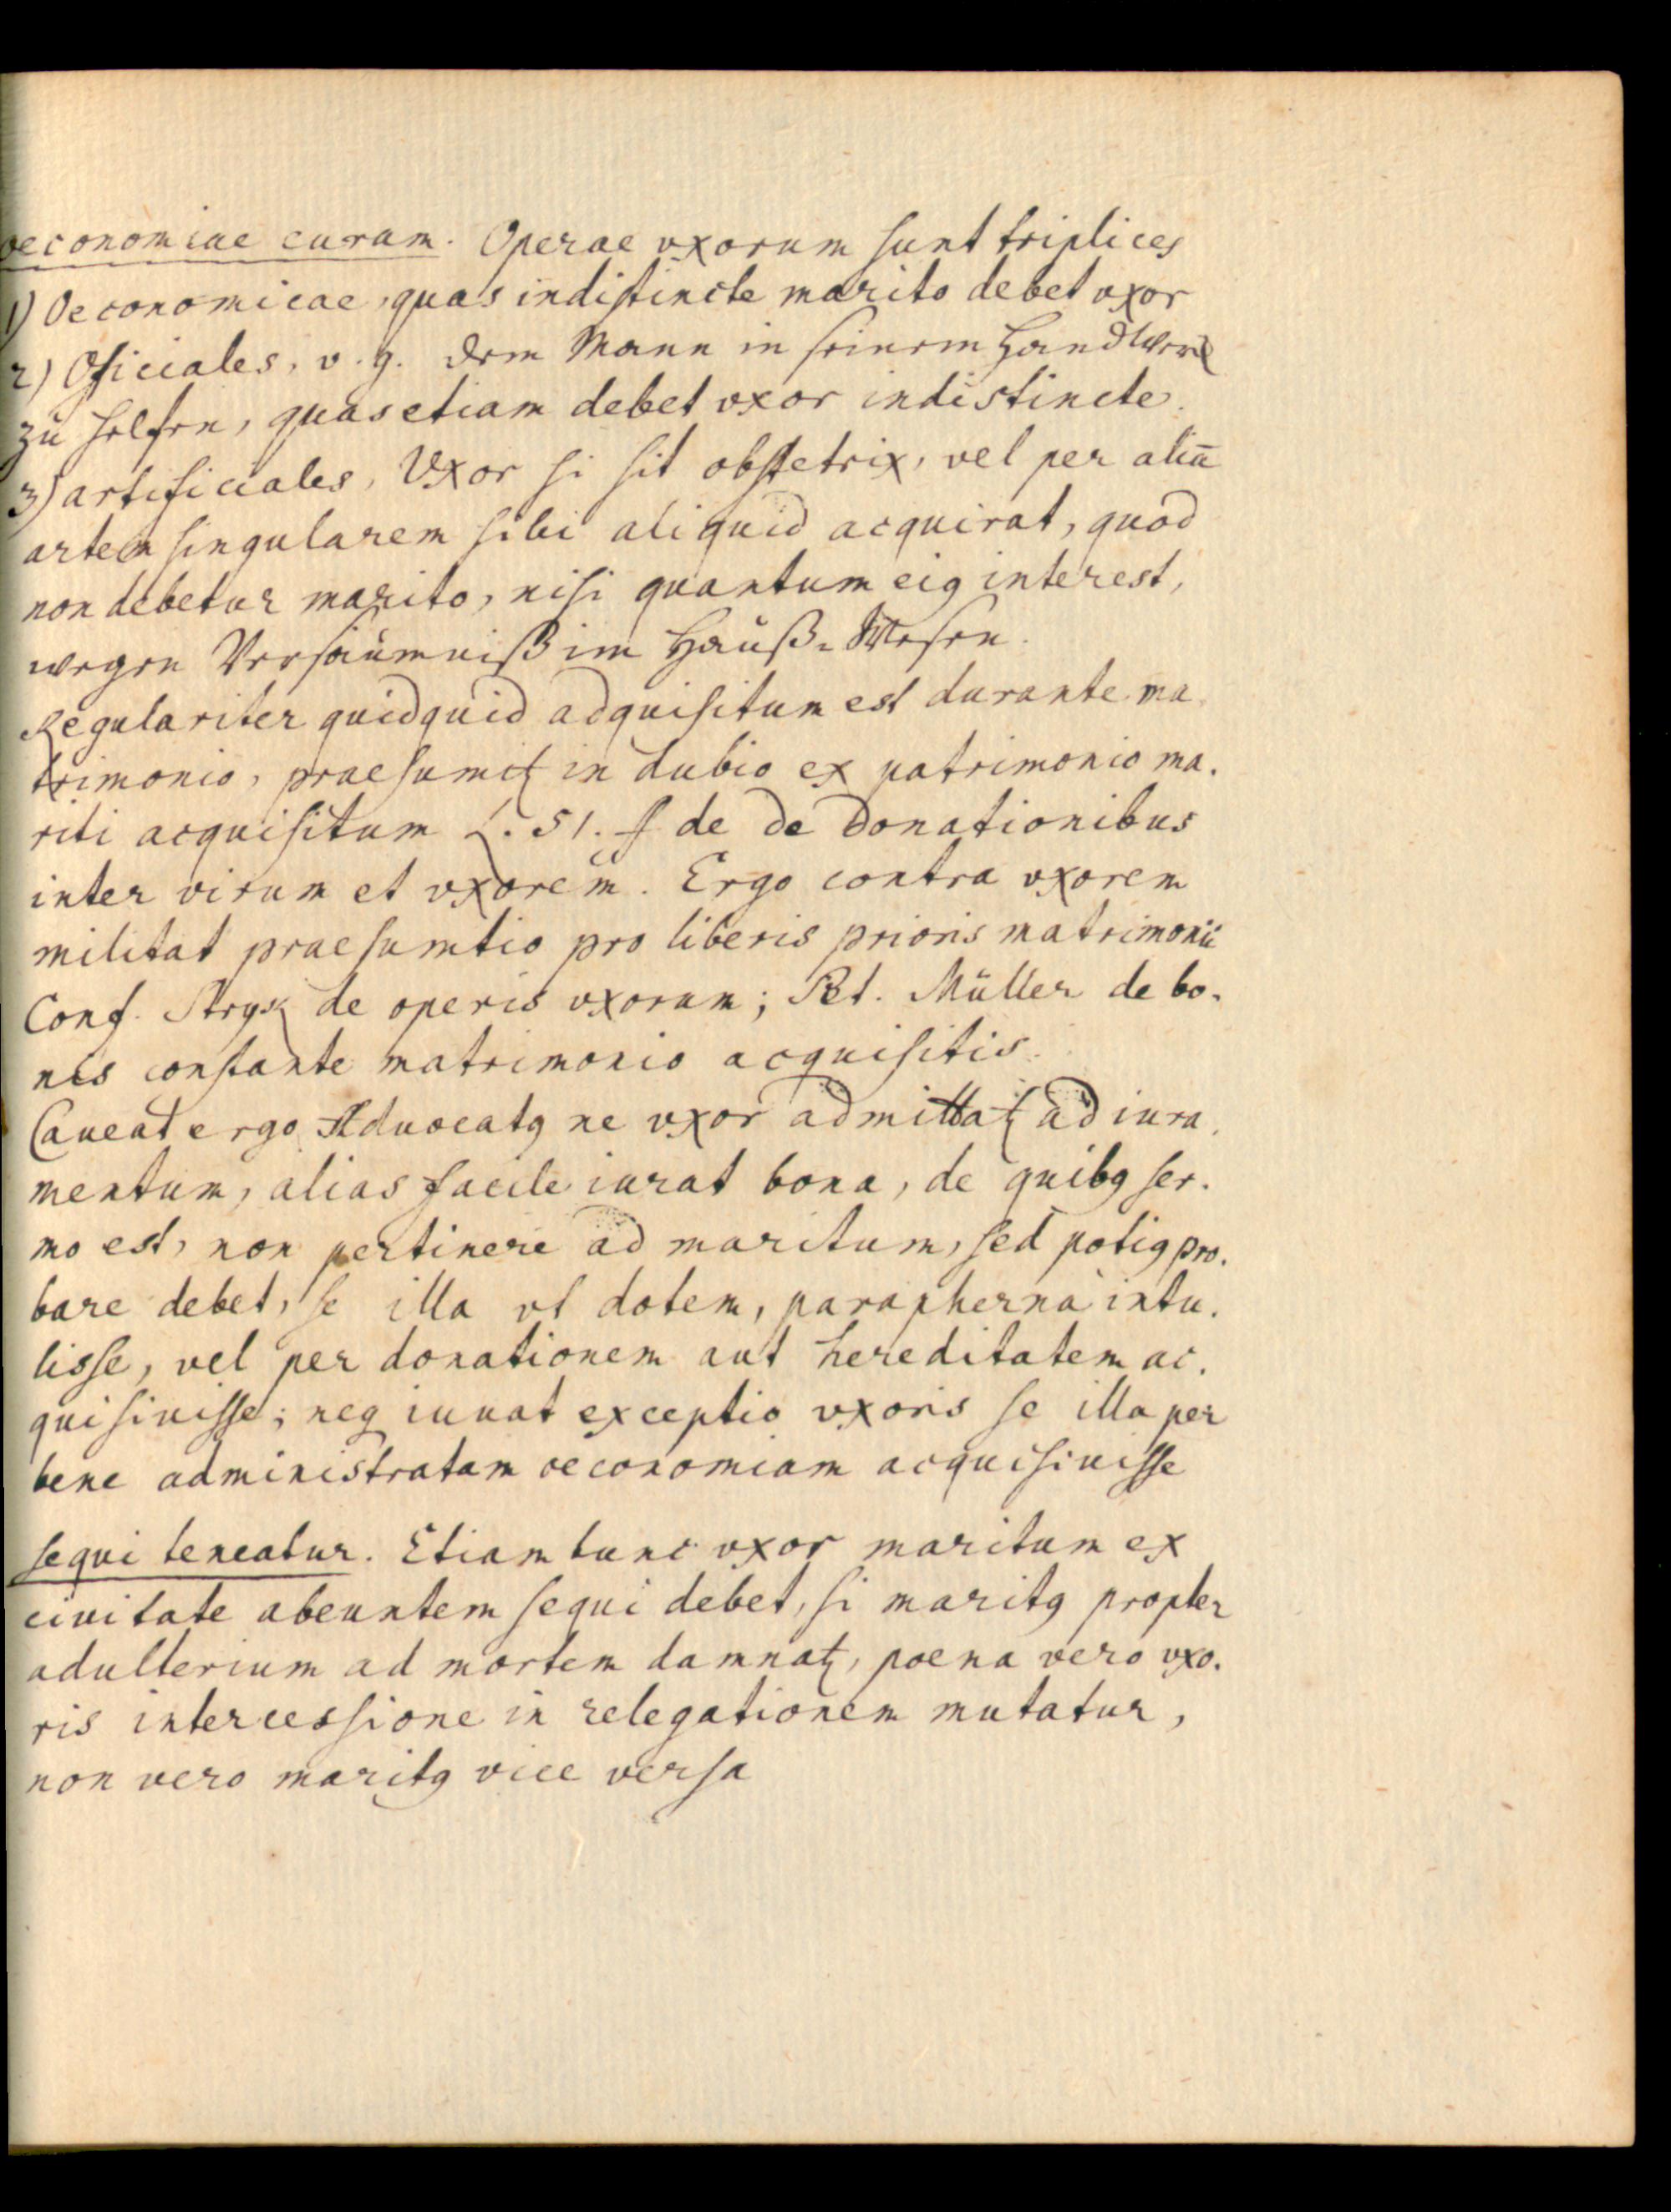 oeconomiae curam. Operae vxorum sunt triplices
1) Oeconomicae, quas indistincte marito debet vxor
2) Officiales, v. g. dem Mann in seinem Handwerck
zu helfen, quas etiam debet vxor indistincte.
3) artificiales, Vxor si sit obstetrix, vel per aliā
artem singularem sibi aliquid acquirat, quod
non debetur marito, nisi quantum eiꝰ interest,
wegen Versäumniß im Hauß-Wesen.
Regulariter quidquid adquisitum est durante ma-
trimonio, praesumitꝛ in dubio ex patrimonio ma-
riti acquisitum L. 51. ff de de donationibus
inter virum et vxorem. Ergo contra vxorem
militat praesumtio pro liberis prioris matrimonii
Conf. Stryk de operis vxorum; Pet. Müller de bo-
nis constante matrimonio acquisitis.
Caueat ergo Aduocatꝰ ne vxor admittatꝛ ad iura-
mentum, alias facile iurat bona, de quibꝰ ser-
mo est, non pertinere ad maritum, sed potiꝰ pro-
bare debet, se illa vt dotem, parapherna intu-
lisse, vel per donationem aut hereditatem ac-
quisiuisse; neq iuuat exceptio vxoris se illa per
bene administratam oeconomiam acquisiuisse
sequi teneatur. Etiam tunc vxor maritum ex
ciuitate abeuntem sequi debet, si maritꝰ propter
adulterium ad mortem damnatꝛ, poena vero vxo-
ris intercessione in relegationem mutatur,
non vero maritꝰ vice versa